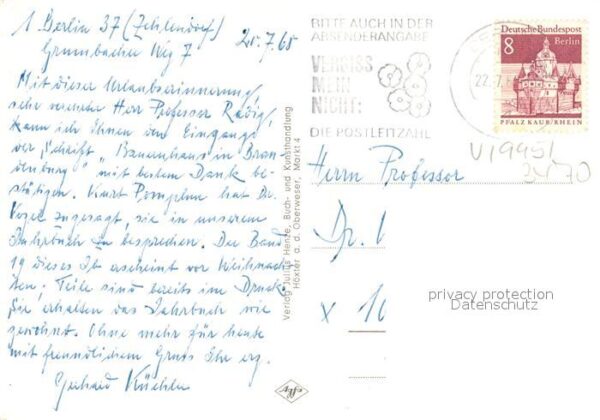 1 Berlin 37 (Zehlendorf)
Grumbacher Weg 7
20.7.68
Mit dieser Urlaubserinnerung,
sehr verehrter Herr Professor Radig,
kann ich Ihnen den Eingang
der Schrift "Bauernhaus in Bran-
denburg" mit bestem Dank be-
stätigen. Kurt Pomplun hat Dr.
Vogel zugesagt, sie in unserem
Jahrbuch zu besprechen. Der Band
19 dieses Jb erscheint vor Weihnach-
ten; Teile sind bereits im Druck.
Sie erhalten das Jahrbuch wie
gewohnt. Ohne mehr für heute
mit freundlichem Gruss Ihr erg.
Gerhard Küchler
Verlag: Julius Henze, Buch- und Kunsthandlung
Höxter a. d. Oberweser, Markt 4
Agfa
BITTE AUCH IN DER
ABSENDERANGABE
VERGISS
MEIN
NICHT:
DIE POSTLEITZAHL
22.7.
Deutsche Bundespost
8 Berlin
PFALZ KAUB/RHEIN
V19951
Herrn Professor
Dr.
x 10
privacy protection
Datenschutz